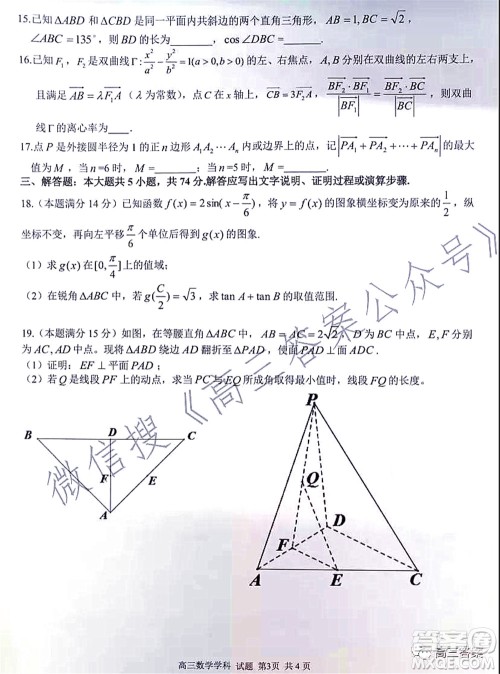 15.已知ΔABD 和ΔCBD是同一平面内共斜边的两个直角三角形，AB=1,BC=√2，
∠ABC=135°，则 BD 的长为______，cos∠DBC=______.
16.已知F₁，F₂是双曲线Γ:x²/a²-y²/b²=1(a>0,b>0)的左、右焦点，A,B分别在双曲线的左右两支上，
且满足AB→=λF₁A→（λ为常数），点C在x轴上，CB→=3F₂A→，(BF₂→·BF₁→)/|BF₁→|=(BF₂→·BC→)/|BC→|，则双曲
线Γ的离心率为_____.
17.点P是外接圆半径为1的正n边形A₁A₂⋯Aₙ内或边界上的点，记|PA₁→+PA₂→+⋯+PAₙ→|的最大
值为M，当n=6时，M=______；当n=5时，M=______.
三、解答题：本大题共5小题，共74分.解答应写出文字说明、证明过程或演算步骤.
18.（本题满分14分）已知函数f(x)=2sin(x-π/6)，将y=f(x)的图象横坐标变为原来的1/2，纵
坐标不变，再向左平移π/6个单位后得到g(x)的图象.
（1）求g(x)在[0,π/4]上的值域；
（2）在锐角ΔABC中，若g(C/2)=√3，求tanA+tanB的取值范围.
19.（本题满分15分）如图，在等腰直角ΔABC中，AB=AC=2√2，D为BC中点，E,F分别
为AC,AD中点。现将ΔABD绕边AD翻折至ΔPAD，使面PAD⊥面ADC.
（1）证明：EF⊥平面PAD；
（2）若Q是线段PF上的动点，求当PC与EQ所成角取得最小值时，线段FQ的长度。
B D C
F E
A
P
Q
D
F
A E C
微信搜《高三答案公众号》
高三数学学科 试题 第3页 共4页
高三答案